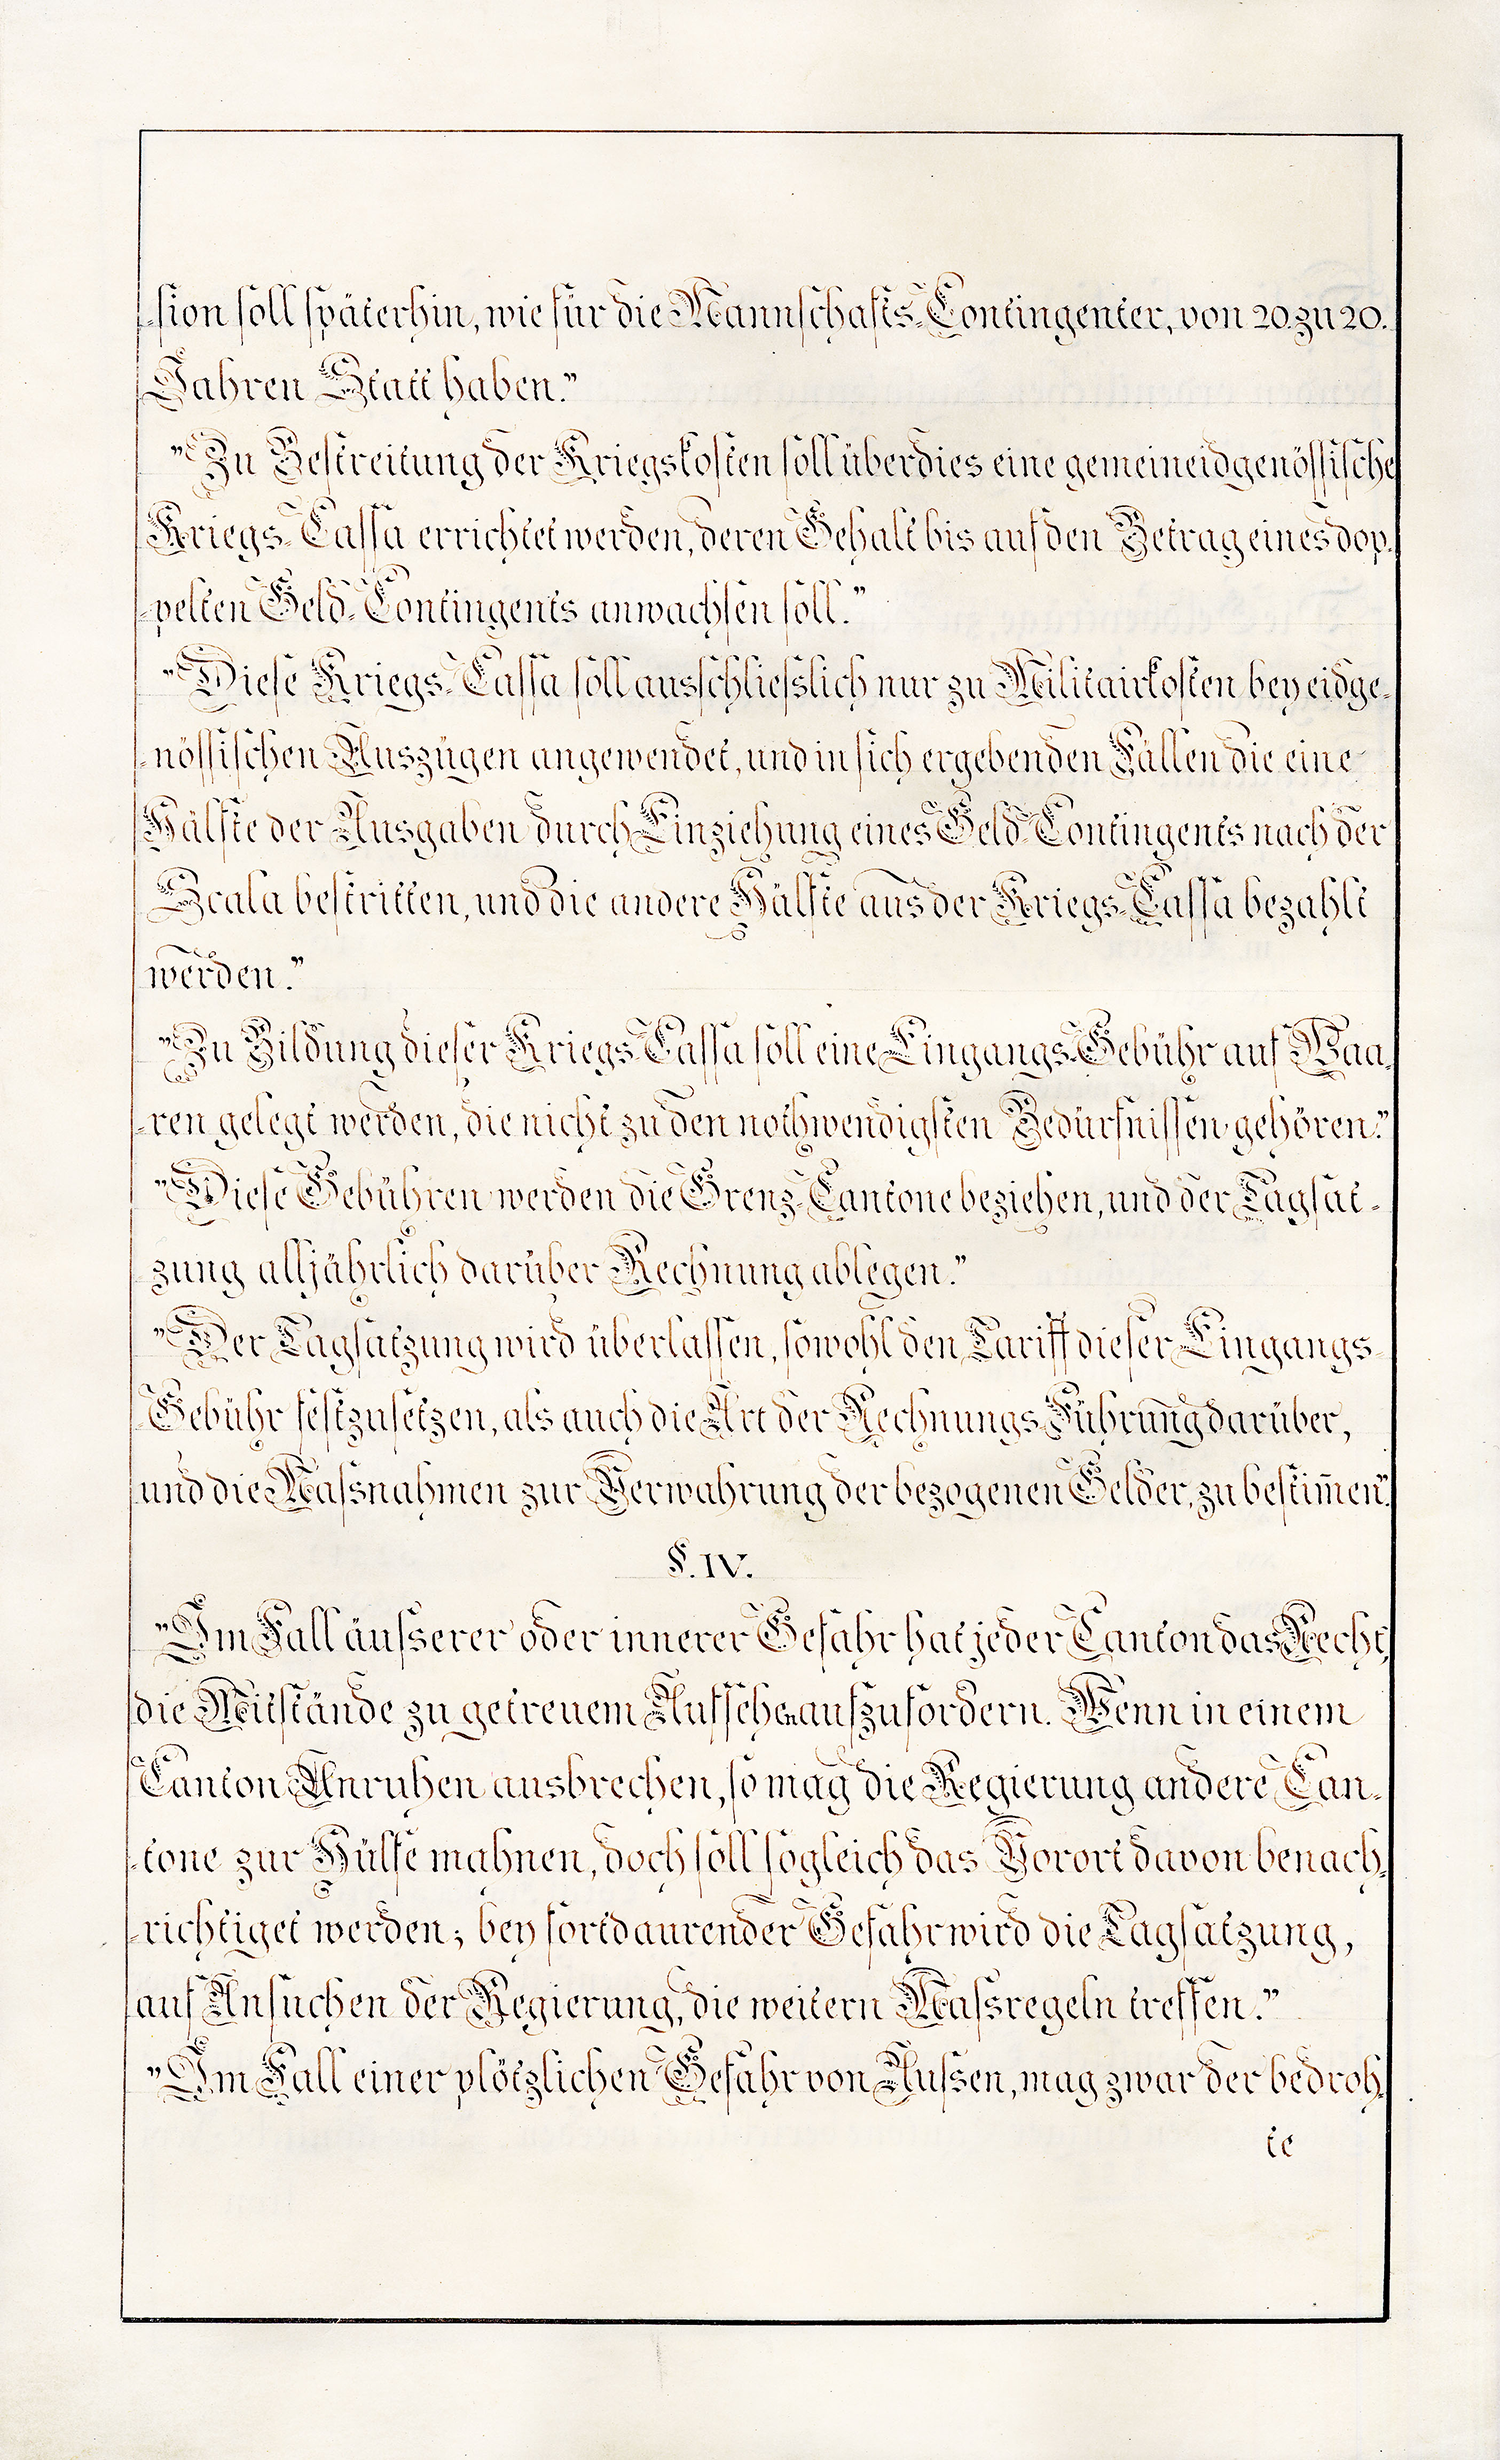 -sion soll späterhin, wie für die Mannschafts-Contingenter, von 20. zu 20.
Jahren Statt haben."
"Zu Bestreitung der Kriegskosten soll überdies eine gemeineidgenössische
Kriegs-Cassa errichtet werden, deren Gehalt bis auf den Betrag eines dop-
-pelten Geld-Contingents anwachsen soll."
"Diese Kriegs-Cassa soll ausschliesslich nur zu Militairkosten bey eidge-
-nössischen Auszügen angewendet, und in sich ergebenden Fällen die eine
Hälfte der Ausgaben durch Einziehung eines Geld-Contingents nach der
Scala bestritten, und die andere Hälfte aus der Kriegs-Cassa bezahlt
werden."
"Zu Bildung dieser Kriegs-Cassa soll eine Eingangs-Gebühr auf Waa-
-ren gelegt werden, die nicht zu den nothwendigsten Bedürfnissen gehören."
"Diese Gebühren werden die Grenz-Cantone beziehen, und der Tagsat-
zung alljährlich darüber Rechnung ablegen."
"Der Tagsatzung wird überlassen, sowohl den Tariff dieser Eingangs-
Gebühr festzusetzen, als auch die Art der Rechnungs-Führung darüber,
und die Massnahmen zur Verwahrung der bezogenen Gelder, zu bestim̅en."
§. IV.
"Im Fall äusserer oder innerer Gefahr hat jeder Canton das Recht,
die Mitstände zu getreuem Aufsehen aufzufordern. Wenn in einem
Canton Unruhen ausbrechen, so mag die Regierung andere Can-
-tone zur Hülfe mahnen, doch soll sogleich das Vorort davon benach-
-richtiget werden; bey fortdaurender Gefahr wird die Tagsatzung,
auf Ansuchen der Regierung, die weitern Massregeln treffen."
"Im Fall einer plötzlichen Gefahr von Aussen, mag zwar der bedroh-
te